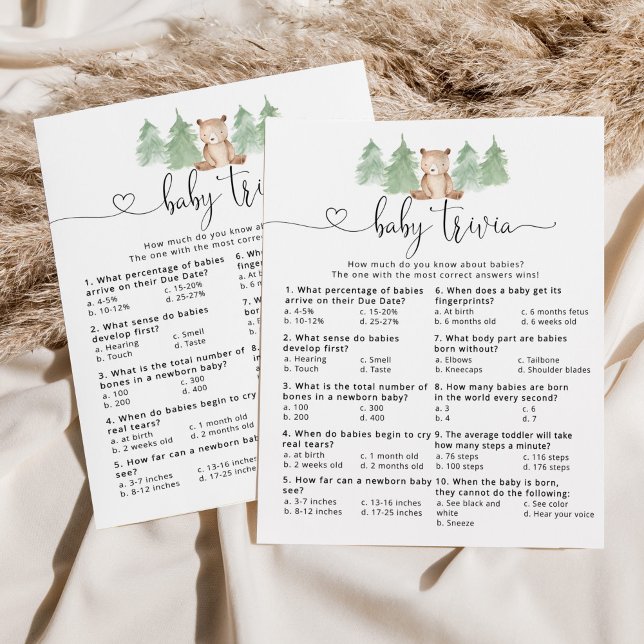 baby trivia
How much do you know about babies?
The one with the most correct answers wins!
1. What percentage of babies
arrive on their Due Date?
a. 4-5% c. 15-20%
b. 10-12% d. 25-27%
2. What sense do babies
develop first?
a. Hearing c. Smell
b. Touch d. Taste
3. What is the total number of
bones in a newborn baby?
a. 100 c. 300
b. 200 d. 400
4. When do babies begin to cry
real tears?
a. at birth c. 1 month old
b. 2 weeks old d. 2 months old
5. How far can a newborn baby
see?
a. 3-7 inches c. 13-16 inches
b. 8-12 inches d. 17-25 inches
6. When does a baby get its
fingerprints?
a. At birth c. 6 months fetus
b. 6 months old d. 6 weeks old
7. What body part are babies
born without?
a. Elbows c. Tailbone
b. Kneecaps d. Shoulder blades
8. How many babies are born
in the world every second?
a. 3 c. 6
b. 4 d. 7
9. The average toddler will take
how many steps a minute?
a. 76 steps c. 116 steps
b. 100 steps d. 176 steps
10. When the baby is born,
they cannot do the following:
a. See black and c. See color
white d. Hear your voice
b. Sneeze
baby triv
How much do you know about
The one with the most correct
1. What percentage of babies
arrive on their Due Date?
a. 4-5% c. 15-20%
b. 10-12% d. 25-27%
2. What sense do babies
develop first?
a. Hearing c. Smell
b. Touch d. Taste
3. What is the total number of
bones in a newborn baby?
a. 100 c. 300
b. 200 d. 400
4. When do babies begin to cry
real tears?
a. at birth c. 1 month old
b. 2 weeks old d. 2 months old
5. How far can a newborn baby
see?
a. 3-7 inches c. 13-16 inches
b. 8-12 inches d. 17-25 inches
6. Wh
finger
a. At
b. 6 m
7. W
born
a.
b.
8.
in